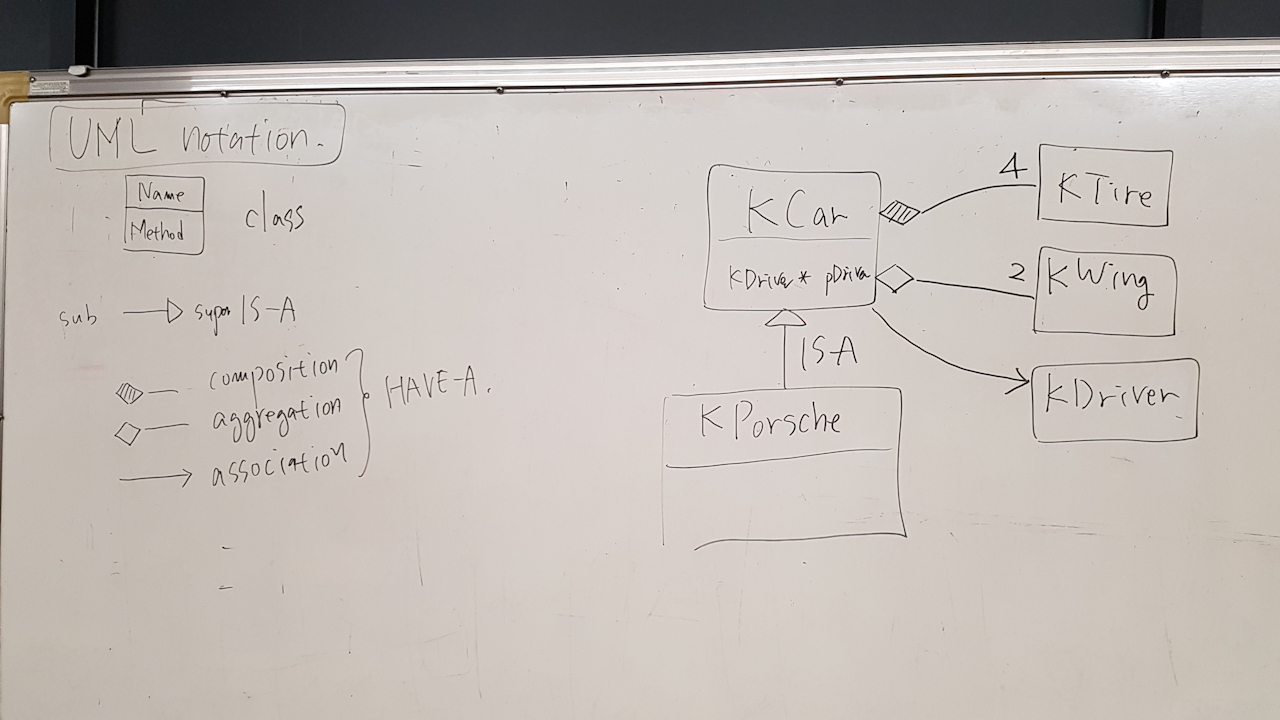 UML notation.
Name
Method
class
sub
super IS-A
composition
aggregation
association
HAVE-A.
KCar
KDriver* pDriver
4
KTire
2
KWing
KDriver
IS-A
KPorsche